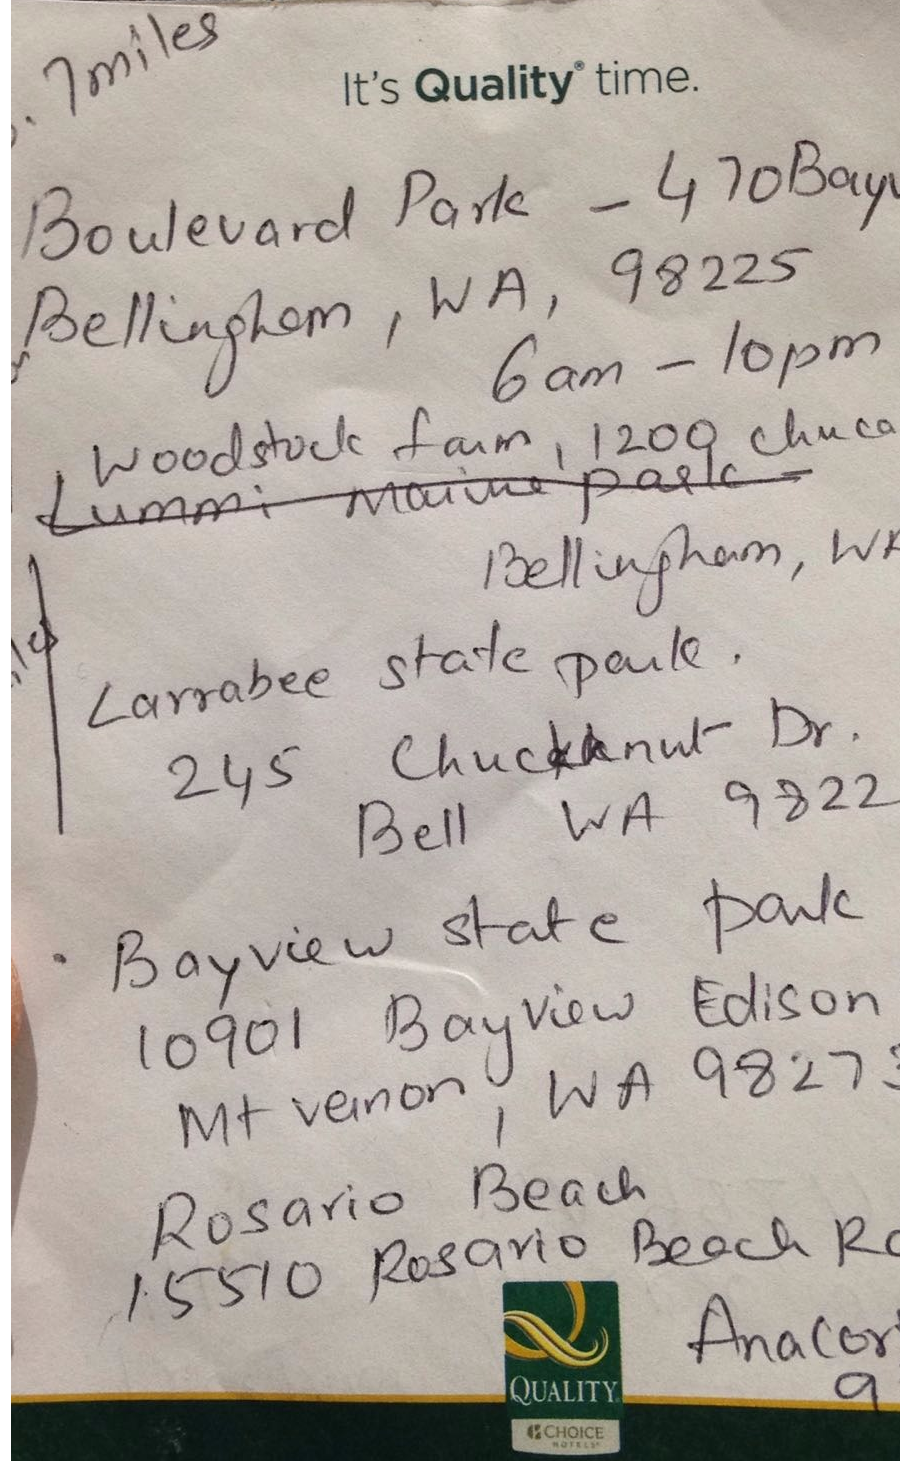 . 7miles
It's Quality® time.
Boulevard Park - 470 Bayv
Bellingham, WA, 98225
6am - 10pm
Woodstock farm, 1200 chuca
Lummi Marine park
Bellingham, WA
Larrabee state park.
245 Chuckknut Dr.
Bell WA 9822
• Bayview state park
10901 Bayview Edison
Mt vernon, WA 98273
Rosario Beach
15510 Rosario Beach Ro
Anacor
9
QUALITY
CHOICE
HOTELS